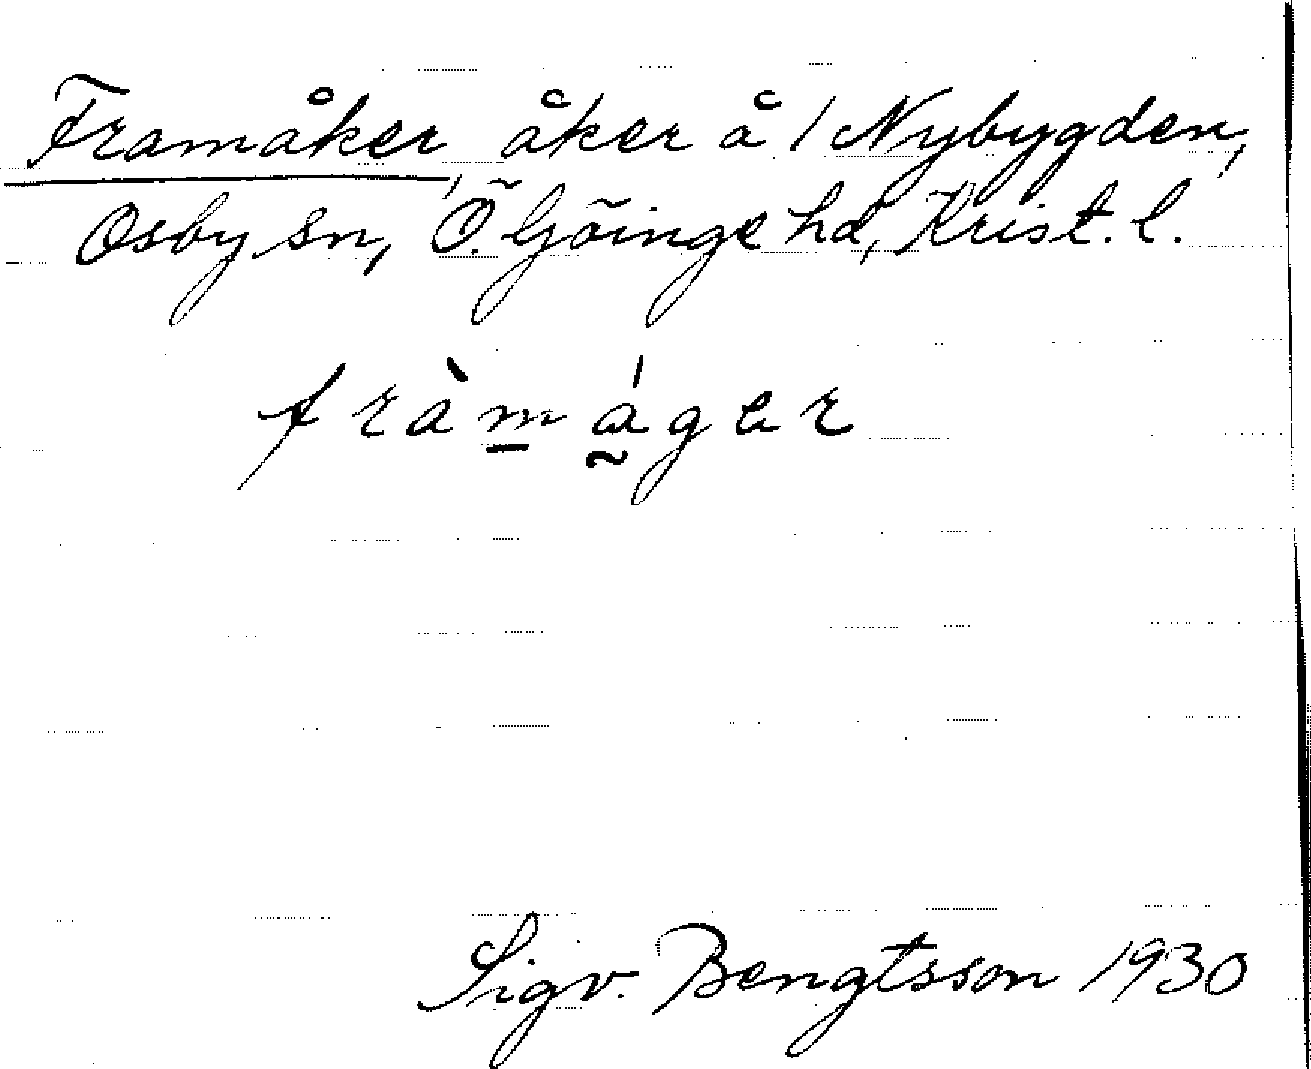 Framåker, åker å 1 Nybygden,
Osby sn, Ö. Göinge hd, Krist. l.
fràmáger
Sigv. Bengtsson 1930